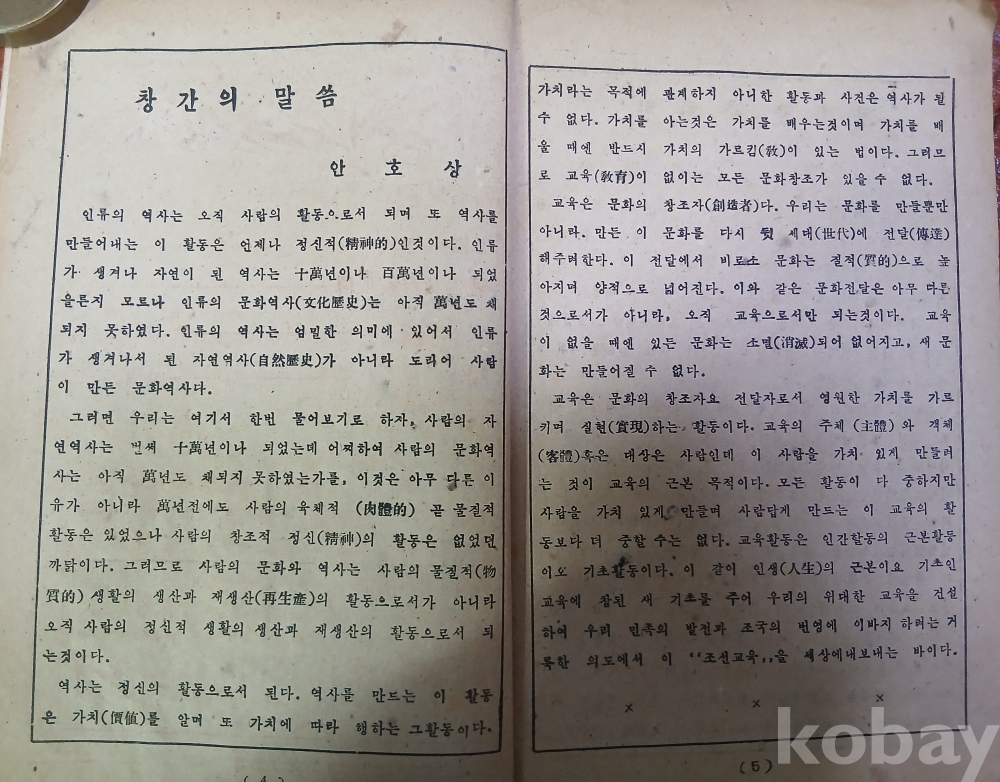 창간의 말씀
안호상
인류의 역사는 오직 사람의 활동으로서 되며 또 역사를
만들어내는 이 활동은 언제나 정신적(精神的)인것이다. 인류
가 생겨나 자연이 된 역사는 十萬년이나 百萬년이나 되었
을른지 모르나 인류의 문화역사(文化歷史)는 아직 萬년도 채
되지 못하였다. 인류의 역사는 엄밀한 의미에 있어서 인류
가 생겨나서 된 자연역사(自然歷史)가 아니라 도리어 사람
이 만든 문화역사다.
그러면 우리는 여기서 한번 물어보기로 하자, 사람의 자
연역사는 벌써 十萬년이나 되었는데 어찌하여 사람의 문화역
사는 아직 萬년도 채되지 못하였는가를, 이것은 아무 다른 이
유가 아니라 萬년전에도 사람의 육체적 (肉體的) 곧 물질적
활동은 있었으나 사람의 창조적 정신(精神)의 활동은 없었던
까닭이다. 그러므로 사람의 문화와 역사는 사람의 물질적(物
質的) 생활의 생산과 재생산(再生產)의 활동으로서가 아니라
오직 사람의 정신적 생활의 생산과 재생산의 활동으로서 되
는것이다.
역사는 정신의 활동으로서 된다. 역사를 만드는 이 활동
은 가치(價値)를 알며 또 가치에 따라 행하는 그활동이다.
( 4 )
가치라는 목적에 관계하지 아니한 활동과 사건은 역사가 될
수 없다. 가치를 아는것은 가치를 배우는것이며 가치를 배
울 때엔 반드시 가치의 가르킴(敎)이 있는 법이다. 그러므
로 교육(敎育)이 없이는 모든 문화창조가 있을 수 없다.
교육은 문화의 창조자(創造者)다. 우리는 문화를 만들뿐만
아니라. 만든 이 문화를 다시 뒷 세대(世代)에 전달(傳達)
해주려한다. 이 전달에서 비로소 문화는 질적(質的)으로 높
아지며 양적으로 넓어진다. 이와 같은 문화전달은 아무 다른
것으로서가 아니라, 오직 교육으로서만 되는것이다. 교육
이 없을 때엔 있든 문화는 소멸(消滅)되어 없어지고, 새 문
화는 만들어질 수 없다.
교육은 문화의 창조자요 전달자로서 영원한 가치를 가르
키며 실현(實現)하는 활동이다. 교육의 주체 (主體) 와 객체
(客體)혹은 대상은 사람인데 이 사람을 가치 있게 만들려
는 것이 교육의 근본 목적이다. 모든 활동이 다 중하지만
사람을 가치 있게 만들며 사람답게 만드는 이 교육의 활
동보다 더 중할 수는 없다. 교육활동은 인간할동의 근본활등
이오 기초활동이다. 이 같이 인생(人生)의 근본이요 기초인
교육에 참된 새 기초를 주어 우리의 위대한 교육을 건설
하여 우리 민족의 발전과 조국의 번영에 이바지 하려는 거
룩한 의도에서 이 “조선교육„을 세상에내보내는 바이다.
× × ×
( 5 )
kobay